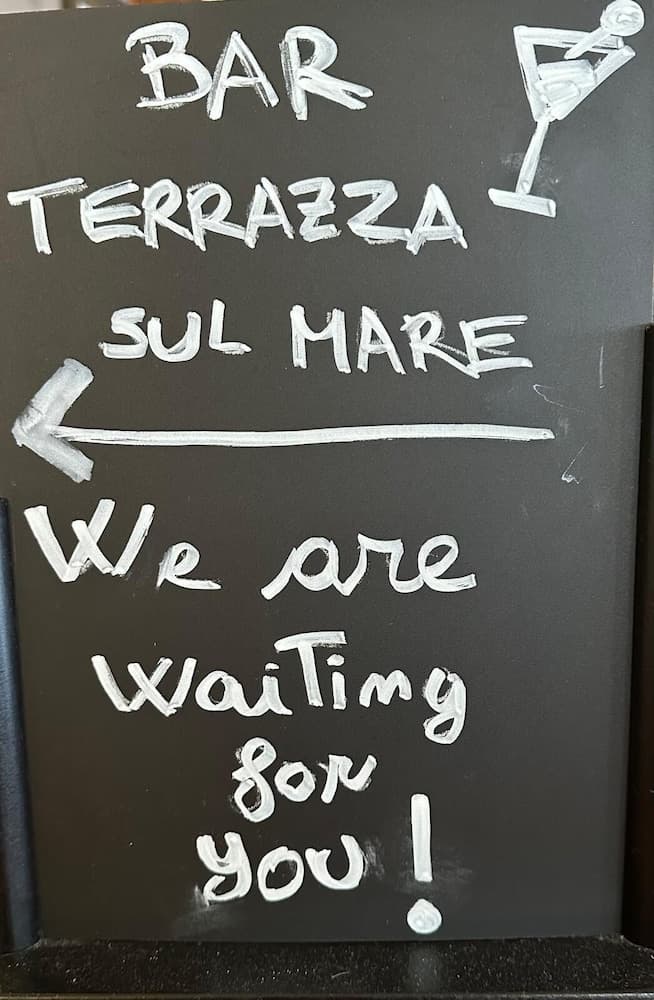 BAR
TERRAZZA
SUL MARE
We are
waiting
for
you!